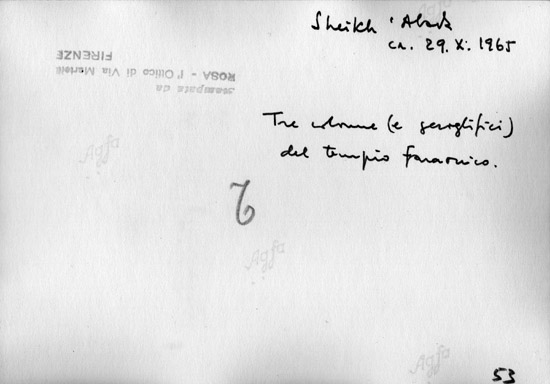 Sheikh 'Abada
ca. 29. X. 1965
stampata da
ROSA - l'Ottico di Via Martelli
FIRENZE
Tre colonne (e geroglifici)
del tempio faraonico.
Agfa
Agfa
Agfa
53